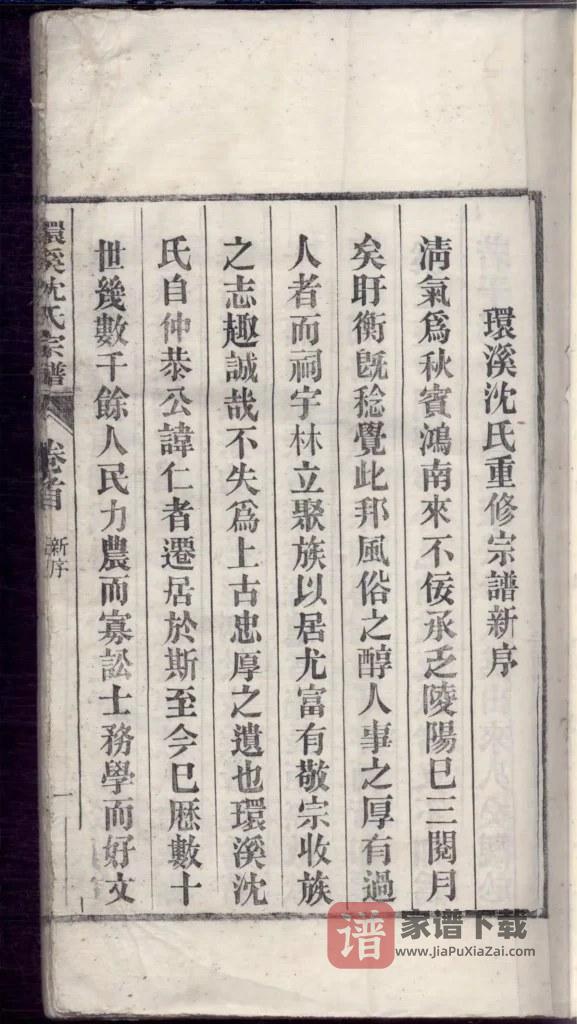 環溪沈氏重修宗譜新序
清氣爲秋賓鴻南來不佞承乏陵陽已三閱月
矣盱衡旣稔覺此邦風俗之醇人事之厚有過
人者而祠宇林立聚族以居尤富有敬宗收族
之志趣誠哉不失爲上古忠厚之遺也環溪沈
氏自仲恭公諱仁者遷居於斯至今已歷數十
世幾數千餘人民力農而寡訟士務學而好文
環溪沈氏宗譜
卷首
新序
一
譜
家谱下载
www.JiaPuXiaZai.com